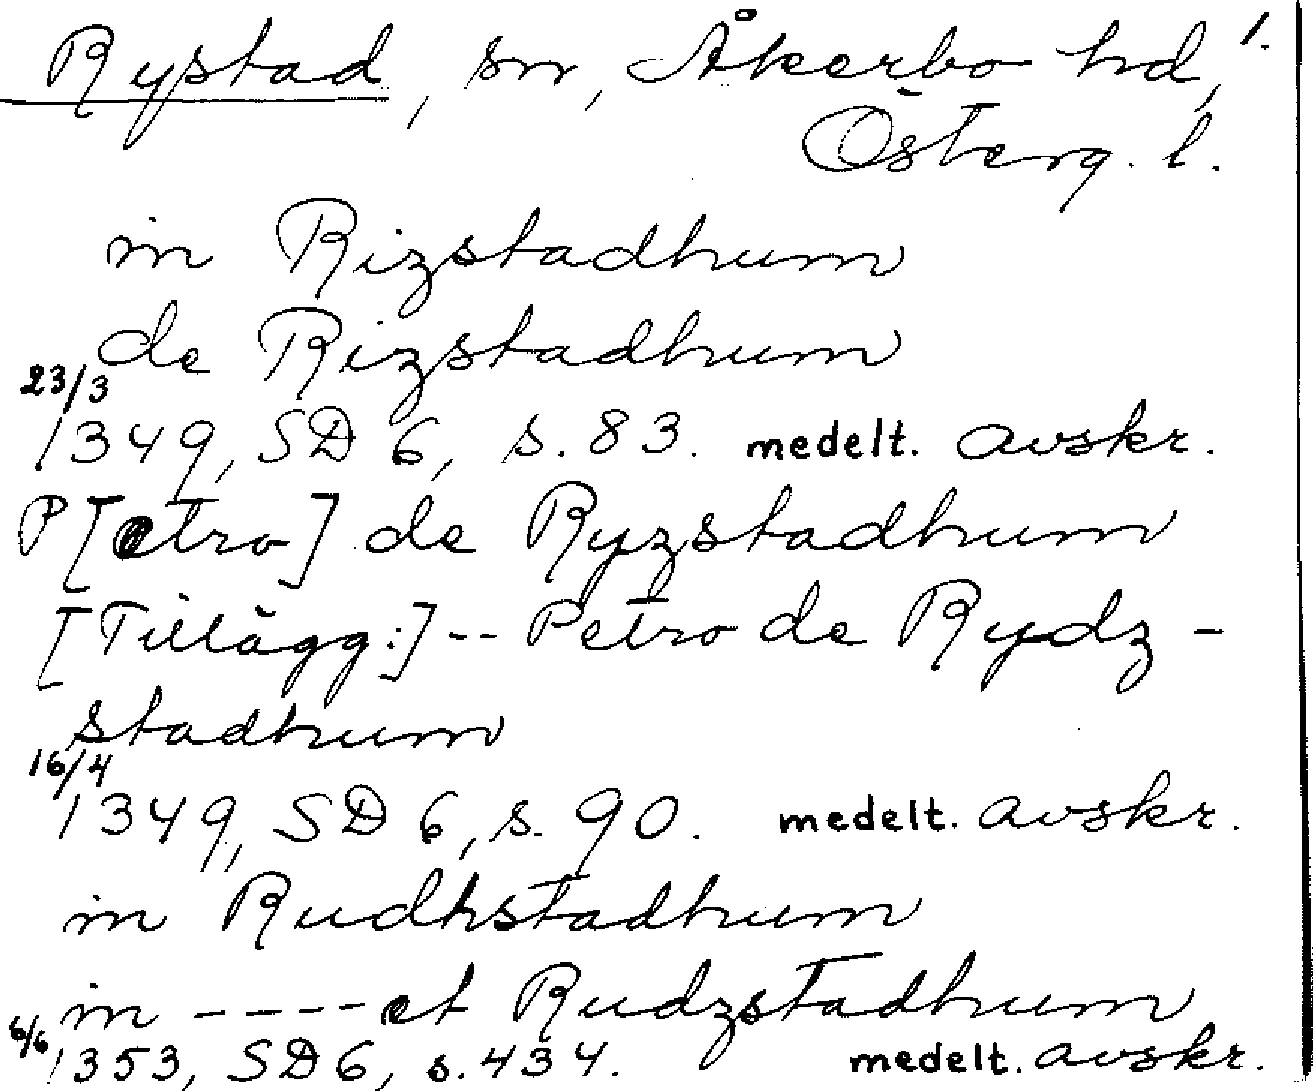 Rystad, sn, Åkerbo hd, 1.
Österg. l.
in Rizstadhum
de Rizstadhum
23/3
1349, SD 6, s. 83. medelt. avskr.
P[etro] de Ryzstadhum
[Tillägg:] -- Petro de Rydz-
stadhum
16/4
1349, SD 6, s. 90. medelt. avskr.
in Rudhstadhum
in ---- et Rudzstadhum
6/6 1353, SD 6, s. 434. medelt. avskr.